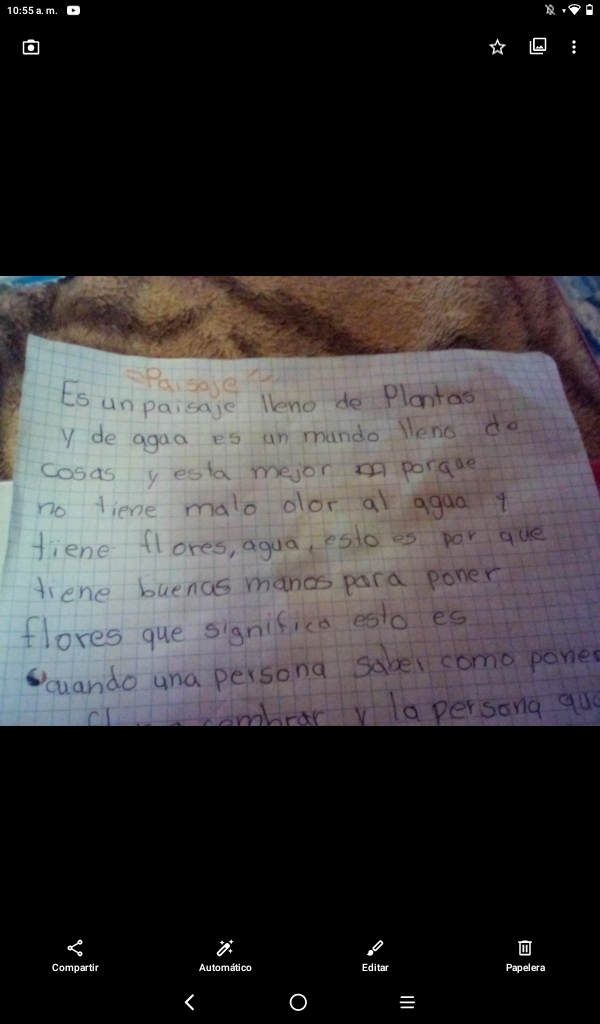 10:55 a. m.
Paisaje
Es un paisaje lleno de Plantas
y de agua es un mundo lleno de
cosas y esta mejor porque
no tiene malo olor al agua y
tiene flores, agua, esto es por que
tiene buenas manos para poner
flores que significa esto es
cuando una persona saber como poner
sembrar y la persona que
Compartir
Automático
Editar
Papelera